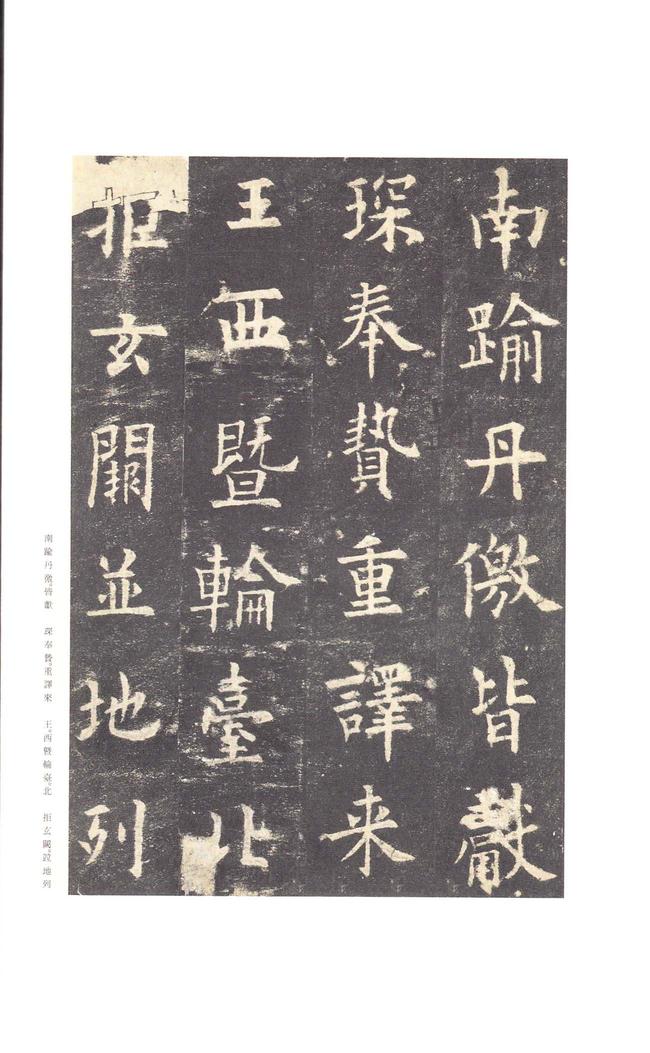 南踰丹儌皆獻
琛奉贄重譯来
王西暨輪臺北
拒玄闕並地列
南踰丹儌皆獻 琛奉贄重譯來 王西暨輪臺北 拒玄闕並地列